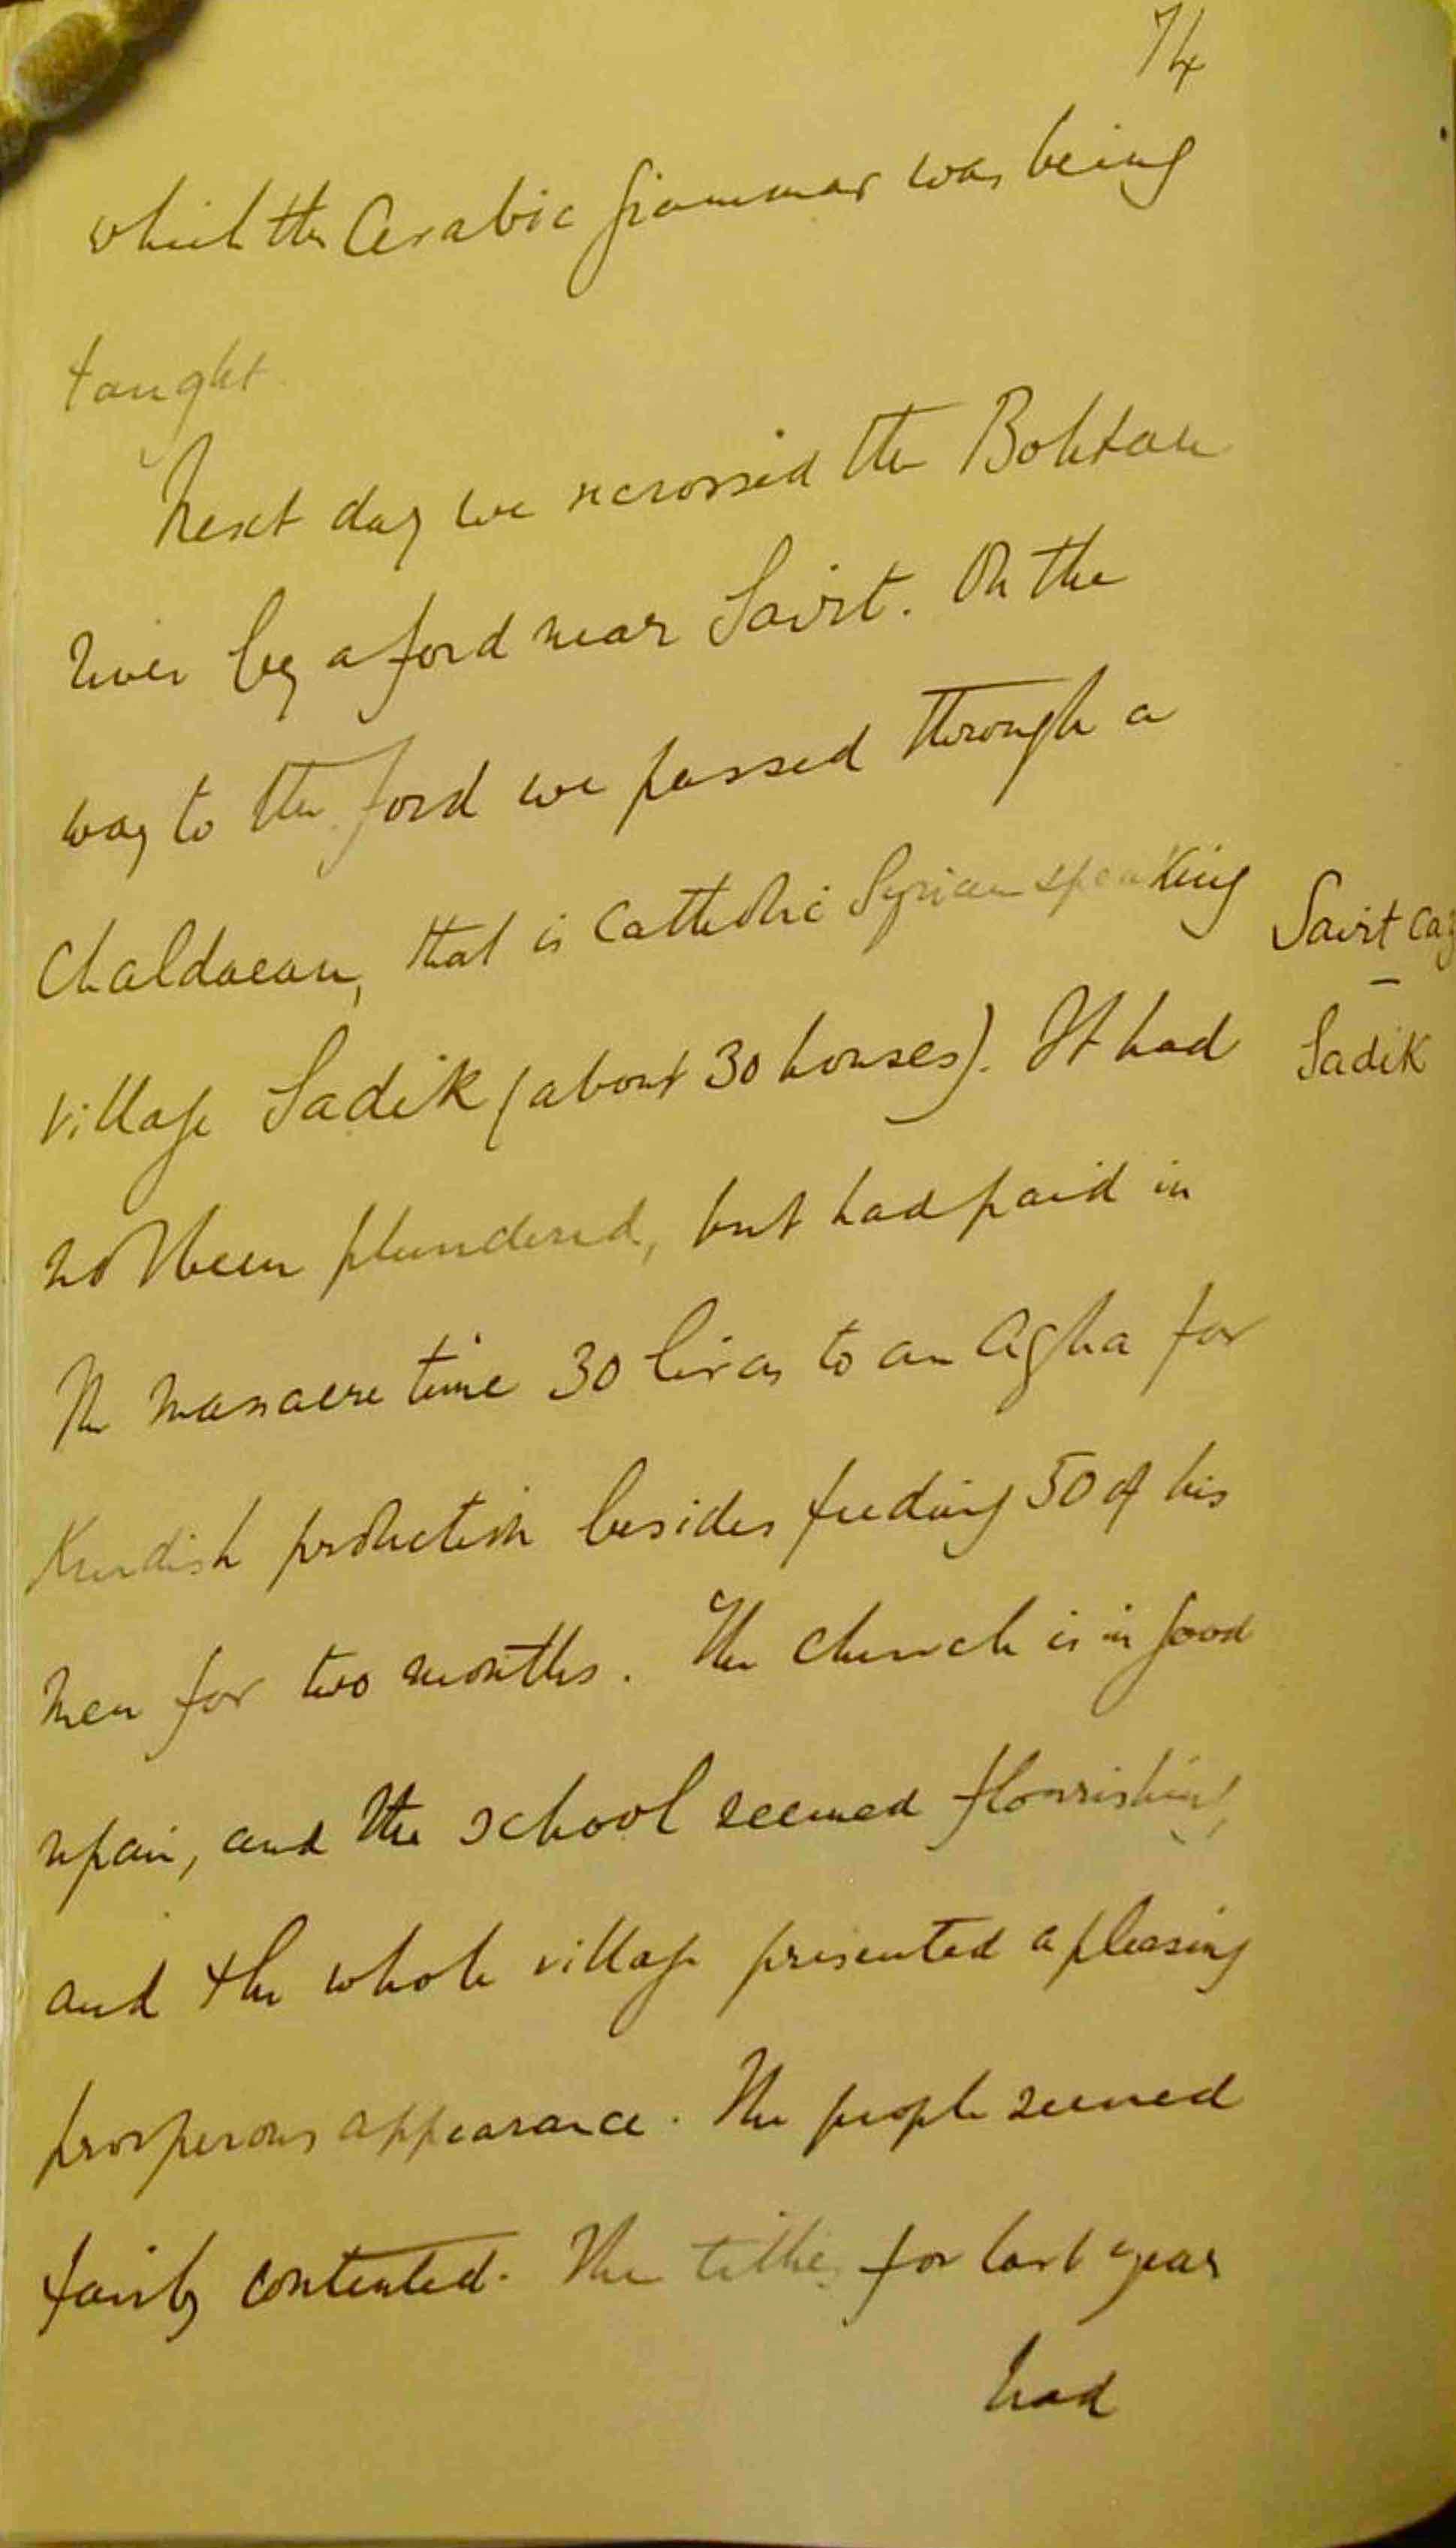 74
which the Arabic grammar was being
taught
Next day we recrossed the Bohtan
river by a ford near Sairt. On the
way to the ford we passed through a
Chaldaean, that is Catholic Syrian speaking
Sairt Caz
village Sadik (about 30 houses). It had
Sadik
not been plundered, but had paid in
the massacre time 30 liras to an Agha for
Kurdish protection besides feeding 50 of his
men for two months. The church is in good
repair, and the school seemed flourishing,
and the whole village presented a pleasing
prosperous appearance. The people seemed
fairly contented. The tithes for last year
had